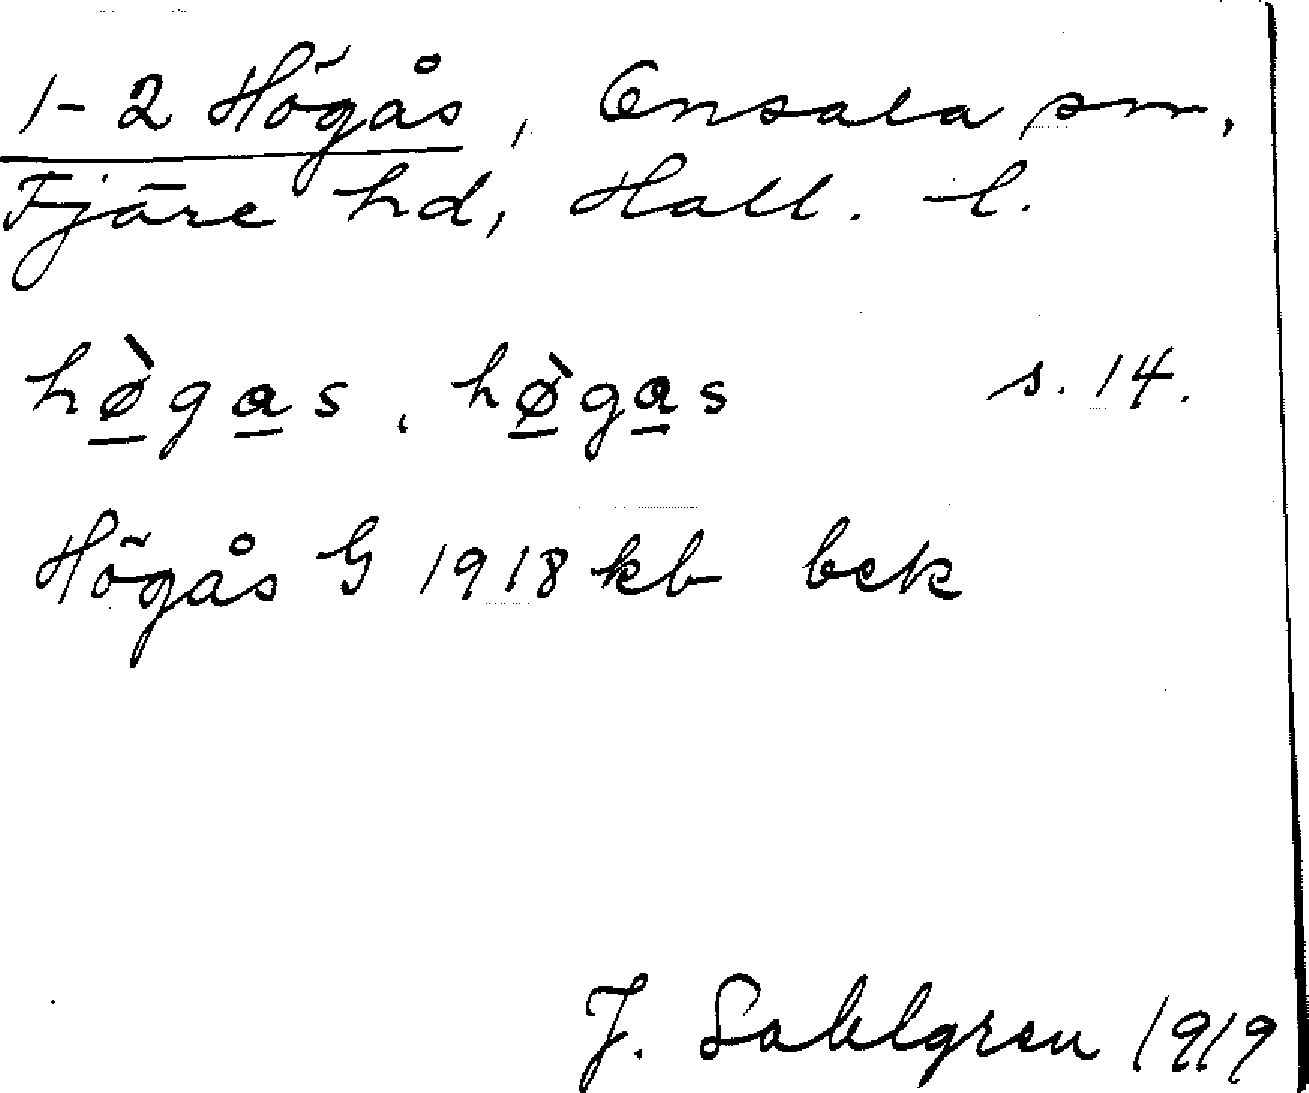 1-2 Högås, Onsala sn,
Fjäre hd, Hall. l.
hø̀gas, hø̀gas s. 14.
Högås G 1918 kb bek
J. Sahlgren 1919